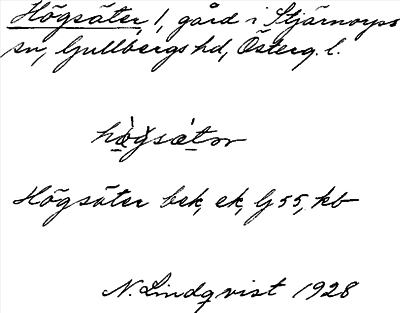 Högsäter, 1, gård i Stjärnorps
sn, Gullbergs hd, Österg. l.
hògsàtər
Högsäter bek, ek, G 55, kb
N. Lindqvist 1928